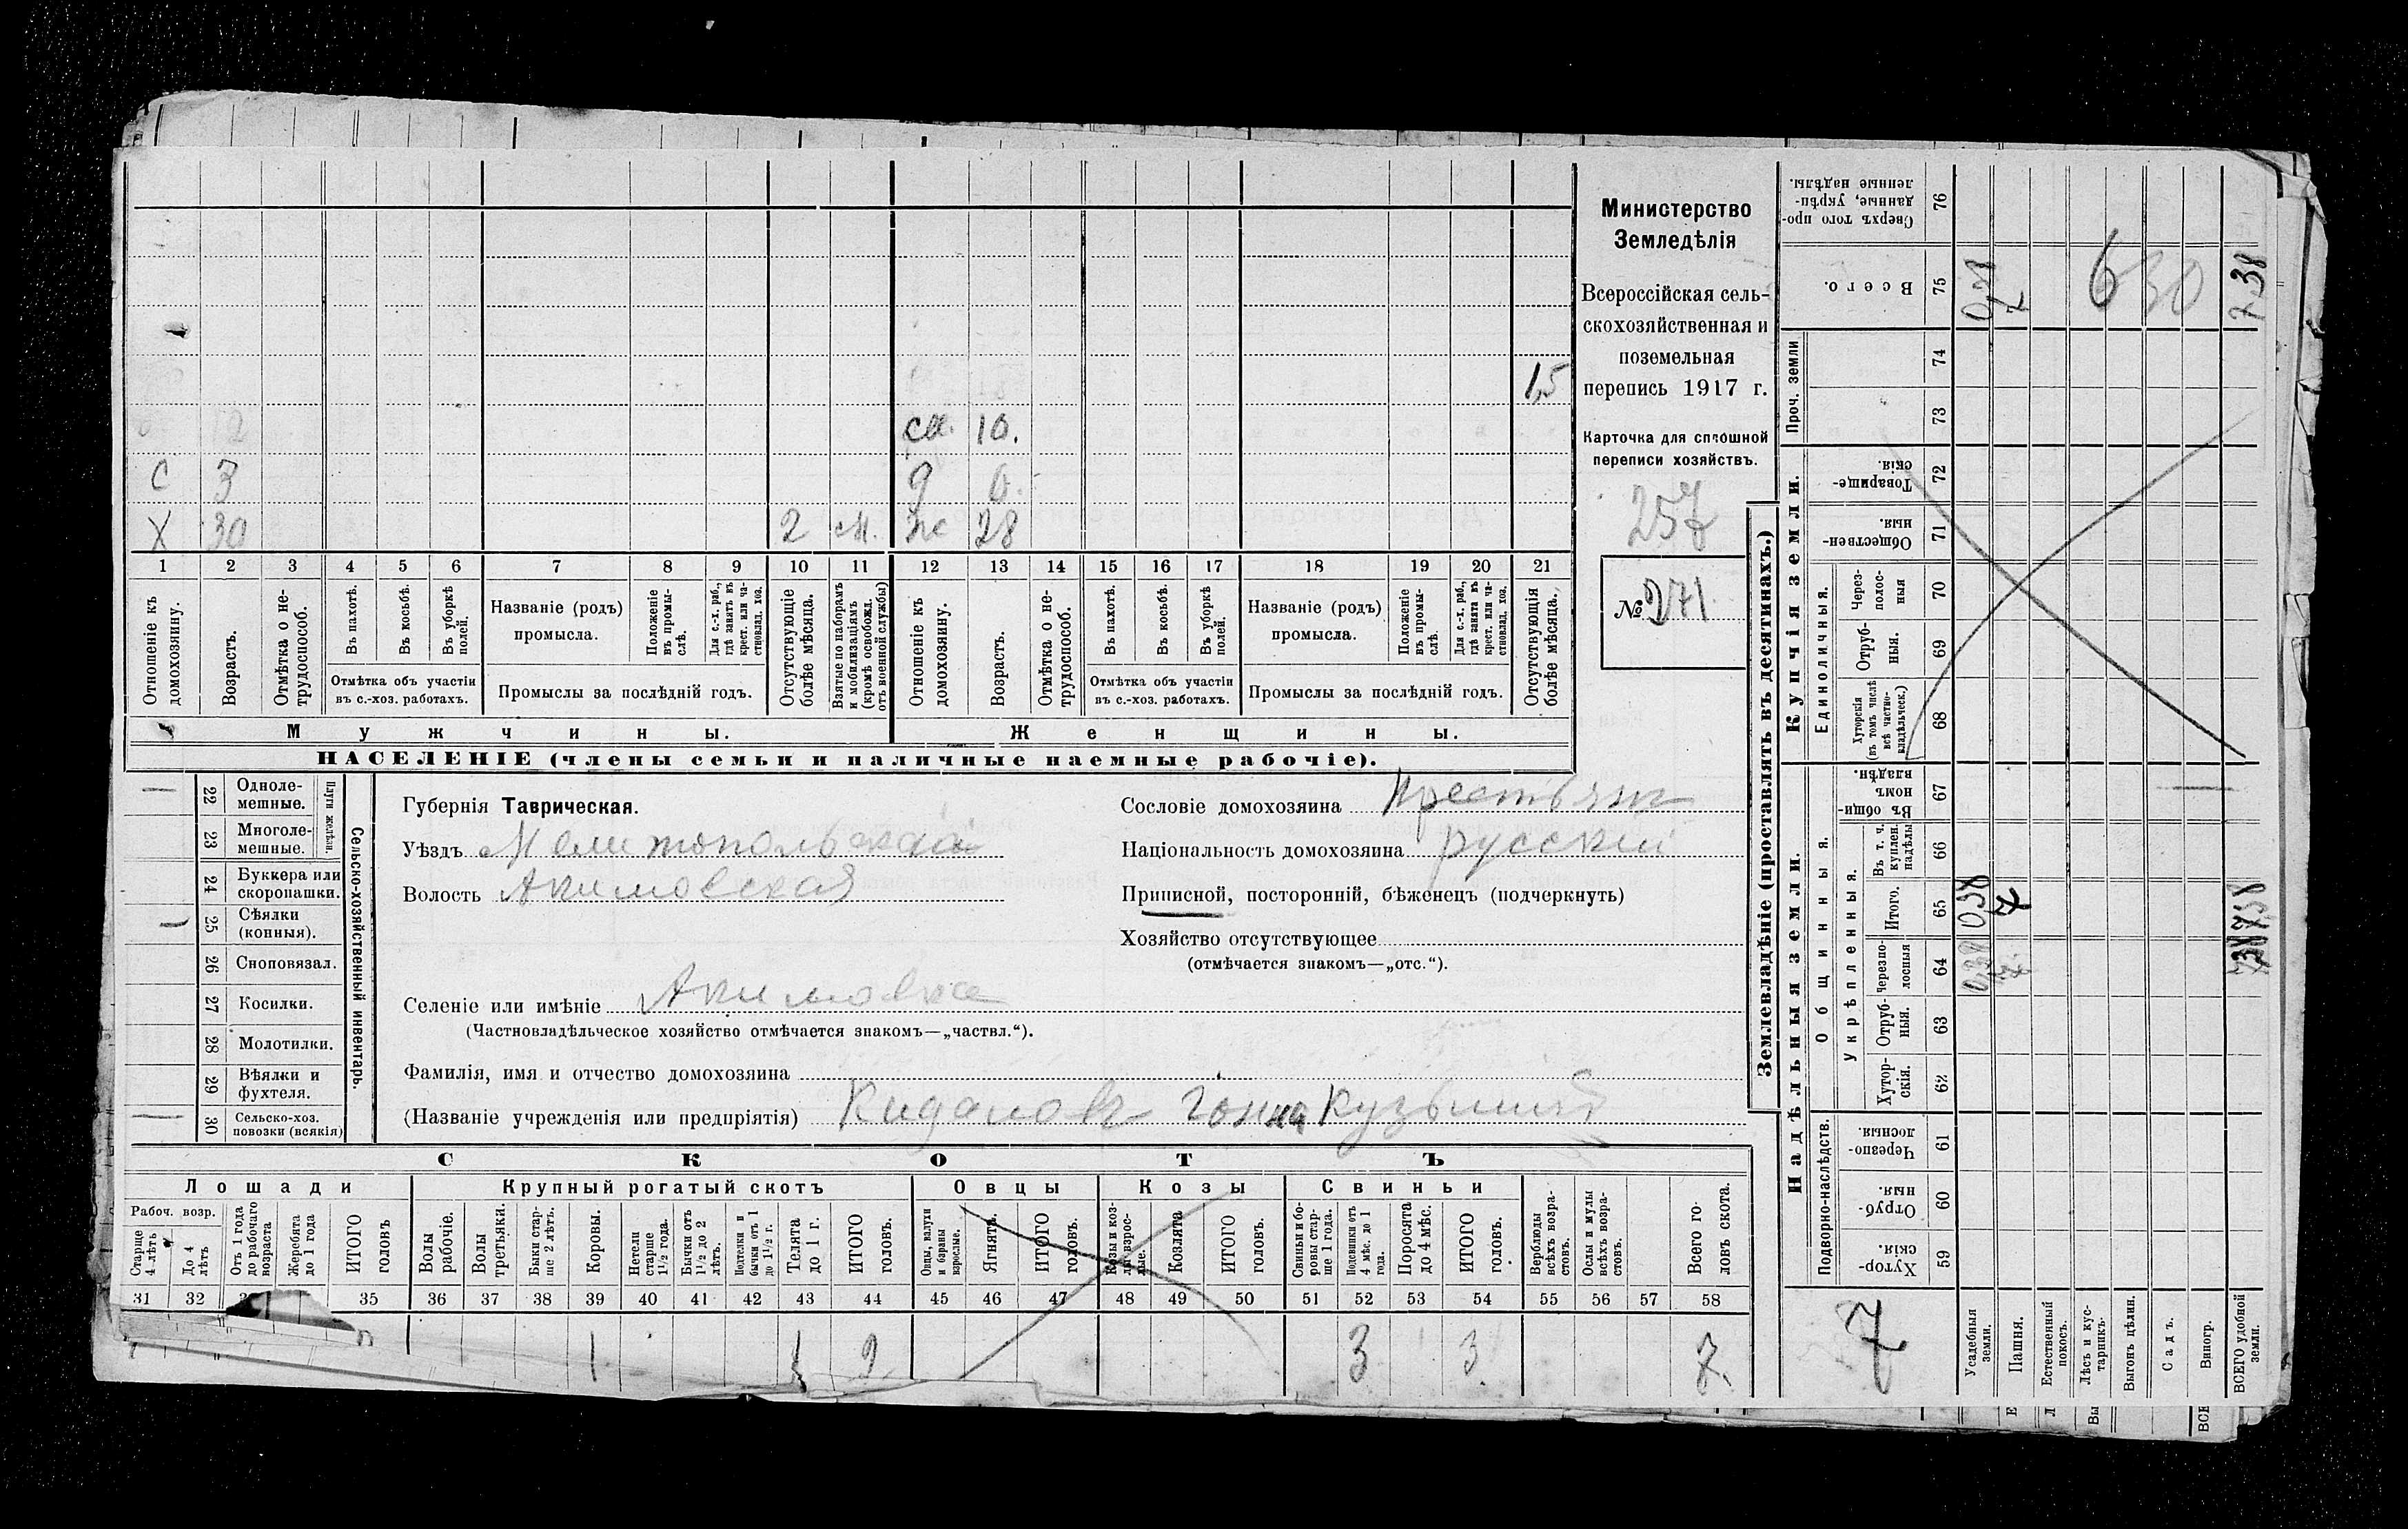 1,5
см. 10.
С 3 д 6.
Х 30 2 м. ж 28
1 2 3 4 5 6 7 8 9 10 11 12 13 14 15 16 17 18 19 20 21
Отношеніе къ домохозяину.
Возрастъ.
Отмѣтка о не-трудоспособ.
Въ пахотѣ.
Въ косьбѣ.
Въ уборкѣ полей.
Отмѣтка объ участіи въ с.-хоз. работахъ.
Названіе (родъ) промысла.
Положеніе въ промы-слѣ.
Для с.-х. раб., гдѣ занятъ въ крест. или ча-стновлад. хоз.
Промыслы за послѣдній годъ.
Отсутствующіе болѣе мѣсяца.
Взятые по наборамъ и мобилизаціямъ (кромѣ освобожд. отъ военной службы)
Отношеніе къ домохозяину.
Возрастъ.
Отмѣтка о не-трудоспособ.
Въ пахотѣ.
Въ косьбѣ.
Въ уборкѣ полей.
Отмѣтка объ участіи въ с.-хоз. работахъ.
Названіе (родъ) промысла.
Положеніе въ промы-слѣ.
Для с.-х. раб., гдѣ занята въ крест. или ча-стновлад. хоз.
Промыслы за послѣдній годъ.
Отсутствующія болѣе мѣсяца.
Мужчины.
Женщины.
НАСЕЛЕНІЕ (члены семьи и наличные наемные рабочіе).
Министерство
Земледѣлія
Всероссійская сель-
скохозяйственная и
поземельная
перепись 1917 г.
Карточка для сплошной
переписи хозяйствъ.
257
№ 271
22 Одноле-мешные.
23 Многоле-мешные.
Плуги желѣзн.
24 Буккера или скоропашки.
25 Сѣялки (конныя).
26 Сноповязал.
27 Косилки.
28 Молотилки.
29 Вѣялки и фухтеля.
30 Сельско-хоз. повозки (всякія)
Сельско-хозяйственный инвентарь.
Губернія Таврическая.
Уѣздъ Мелитопольскій
Волость Акимовская
Селеніе или имѣніе Акимовка
(Частновладѣльческое хозяйство отмѣчается знакомъ—„частвл.“).
Фамилія, имя и отчество домохозяина
(Названіе учрежденія или предпріятія) Кидаловъ Кузьмичъ
Сословіе домохозяина крестьян
Національность домохозяина русскій
Приписной, посторонній, бѣженецъ (подчеркнуть)
Хозяйство отсутствующее
(отмѣчается знакомъ—„отс.“).
СКОТЪ
Лошади
Крупный рогатый скотъ
Овцы
Козы
Свиньи
Рабоч. возр.
Старше 4 лѣтъ
До 4 лѣтъ
Отъ 1 года до рабочаго возраста
Жеребята до 1 года
ИТОГО головъ
Волы рабочіе.
Волы третьяки.
Быки стар-ше 2 лѣтъ.
Коровы.
Нетели старше 1½ года.
Бычки отъ 1½ до 2 лѣтъ.
Нетелки и бычки отъ 1 до 1½ г.
Телята до 1 г.
ИТОГО головъ.
Овцы, валухи и бараны взрослые.
Ягнята.
ИТОГО головъ.
Козы и коз-лы взрос-лые.
Козлята
ИТОГО головъ.
Свиньи и бо-ровы стар-ше 1 года.
Подсвинки отъ 4 мѣс. до 1 года.
Поросята до 4 мѣс.
ИТОГО головъ.
Верблюды всѣхъ возра-стовъ.
Ослы и мулы всѣхъ возра-стовъ.
Всего го-ловъ скота.
31 32 35 36 37 38 39 40 41 42 43 44 45 46 47 48 49 50 51 52 53 54 55 56 57 58
1 1 2 3 3. 7.
Землевладѣніе (проставлять въ десятинахъ.)
Надѣльныя земли.
Купчія земли.
Проч. земли
Подворно-наслѣдств.
Общинныя.
Укрѣпленныя.
Единоличныя.
Сверхъ того про-данные, укрѣп-ленные надѣлы. 76
Всего. 75 0,38 7 6 30 7,38
74
73
Товарище-скія. 72
Обществен-ныя. 71
Через-полос-ныя 70
Отруб-ныя. 69
Хуторскія (въ томъ числѣ всѣ частно-владѣльческ.) 68
Въ общи-номъ владѣн. 67
Въ т. ч. куплен. надѣлы 66
Итого. 65 0,38 7 7,38
Черезпо-лосныя 64 0,38 7 7,38
Отруб-ныя. 63
Хутор-скія. 62
Черезпо-лосныя. 61
Отруб-ныя. 60
Хутор-скія. 59
7
Усадебныя земли.
Пашня.
Естественный покосъ.
Лѣсъ и кус-тарникъ.
Выгонъ цѣлин.
Садъ.
Виногр.
ВСЕГО удобной земли.